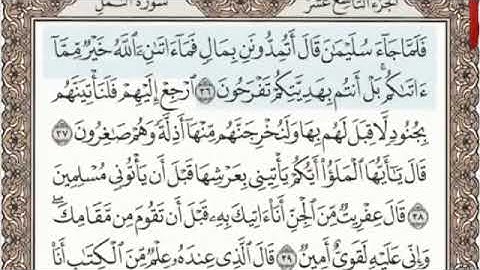 الجزء التاسع عشر سورة النمل
فَلَمَّا جَآءَ سُلَيْمَٰنَ قَالَ أَتُمِدُّونَنِ بِمَالٍ فَمَآ ءَاتَىٰنِۦَ ٱللَّهُ خَيْرٌ مِّمَّآ
ءَاتَىٰكُم بَلْ أَنتُم بِهَدِيَّتِكُمْ تَفْرَحُونَ ٣٦ ٱرْجِعْ إِلَيْهِمْ فَلَنَأْتِيَنَّهُم
بِجُنُودٍ لَّا قِبَلَ لَهُم بِهَا وَلَنُخْرِجَنَّهُم مِّنْهَآ أَذِلَّةً وَهُمْ صَٰغِرُونَ ٣٧
قَالَ يَٰٓأَيُّهَا ٱلْمَلَؤُا۟ أَيُّكُمْ يَأْتِينِى بِعَرْشِهَا قَبْلَ أَن يَأْتُونِى مُسْلِمِينَ
٣٨ قَالَ عِفْرِيتٌ مِّنَ ٱلْجِنِّ أَنَا۠ ءَاتِيكَ بِهِۦ قَبْلَ أَن تَقُومَ مِن مَّقَامِكَ ۖ
وَإِنِّى عَلَيْهِ لَقَوِىٌّ أَمِينٌ ٣٩ قَالَ ٱلَّذِى عِندَهُۥ عِلْمٌ مِّنَ ٱلْكِتَٰبِ أَنَا۠